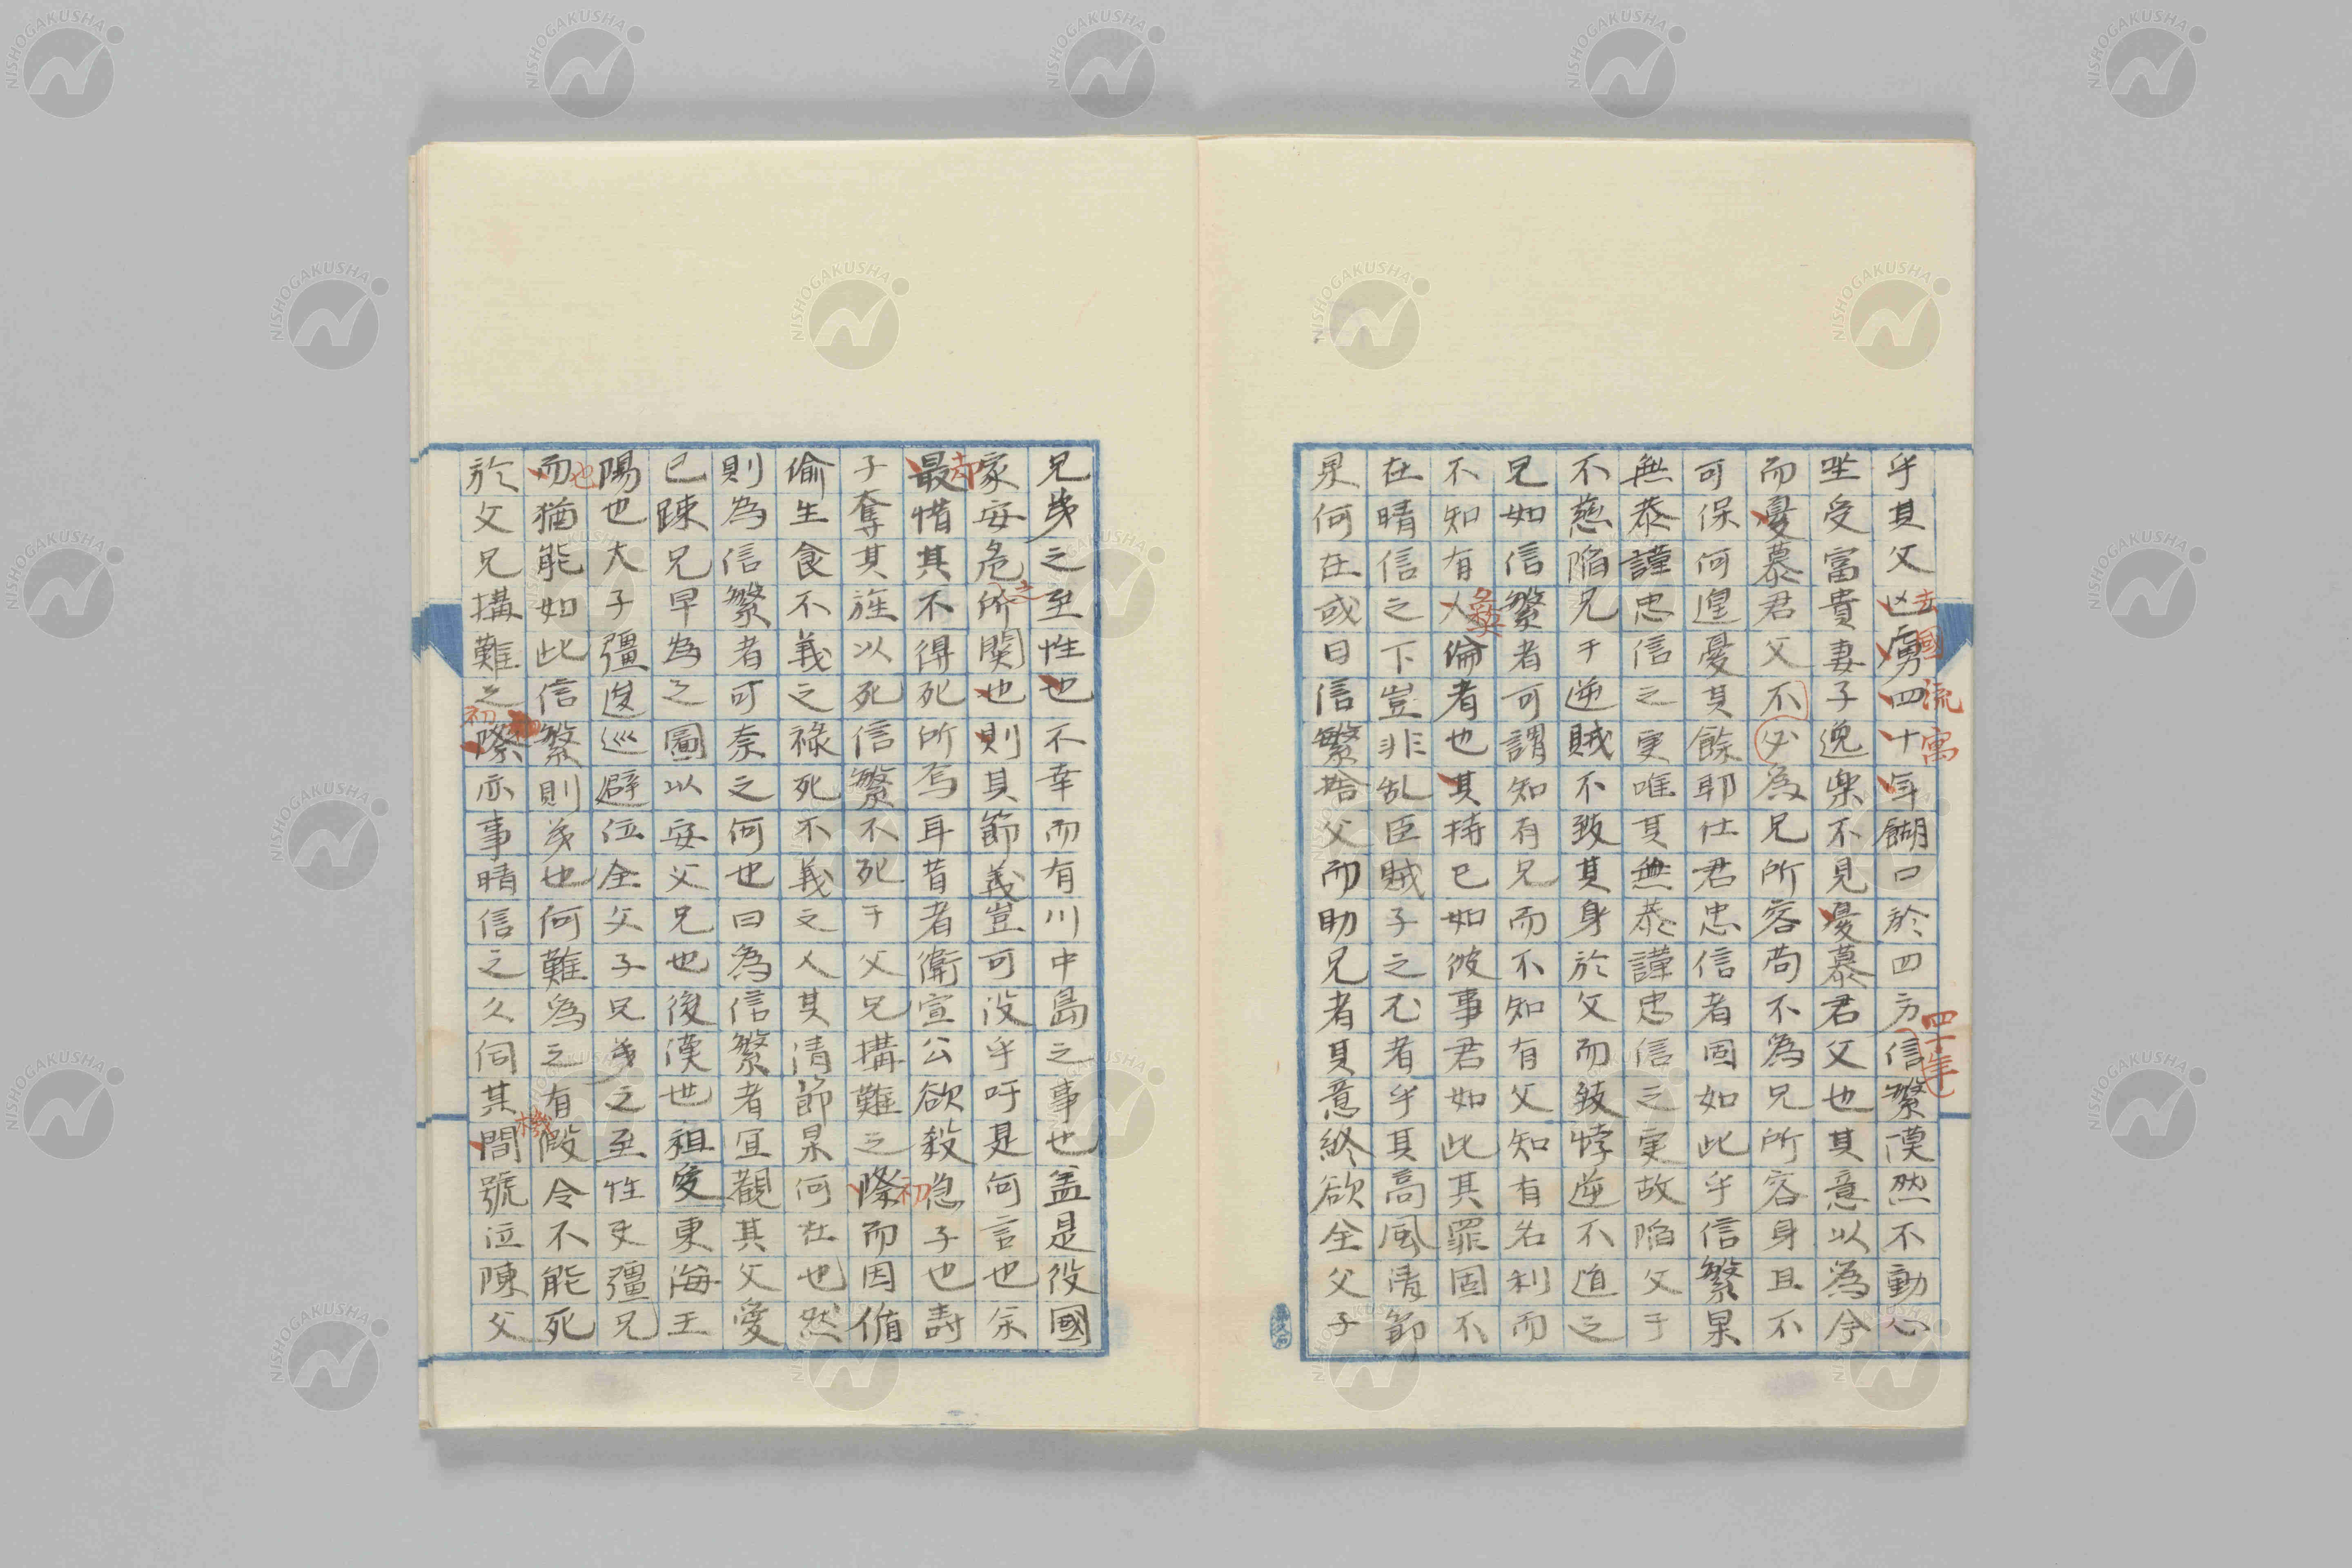 乎其父凶虜四十年餬口於四方信繁漠然不動心
坐受富貴妻子逸樂不見憂慕君父也其意以為今
而憂慕君父不必為兄所容苟不為兄所容身且不
可保何遑憂其餘耶仕君忠信者固如此乎信繁果
無恭謹忠信之実唯其無恭謹忠信之実故陷父于
不慈陷兄于逆賊不致其身於父而致悖逆不道之
兄如信繁者可謂知有兄而不知有父知有名利而
不知有人倫者也其持已如彼事君如此其罪固不
在晴信之下豈非乱臣賊子之尤者乎其高風清節
果何在或曰信繁捨父而助兄者其意終欲全父子
去國流寓
四十年
彝
兄弟之至性也不幸而有川中島之事也盖是役國
家安危所関也則其節義豈可没乎吁是何言也余
最惜其不得死所焉耳昔者衛宣公欲殺急子也壽
子奪其旌以死信繁不死于父兄搆難之際而因循
偷生食不義之祿死不義之人其清節果何在也然
則為信繁者可奈之何也曰為信繁者宜観其父愛
已踈兄早為之圖以安父兄也後漢世祖愛東海王
陽也大子彊逡巡避位全父子兄弟之至性夫彊兄
而猶能如此信繁則弟也何難為之有假令不能死
於父兄搆難之際亦事晴信之久伺其間號泣陳父
之
初
也
初
機